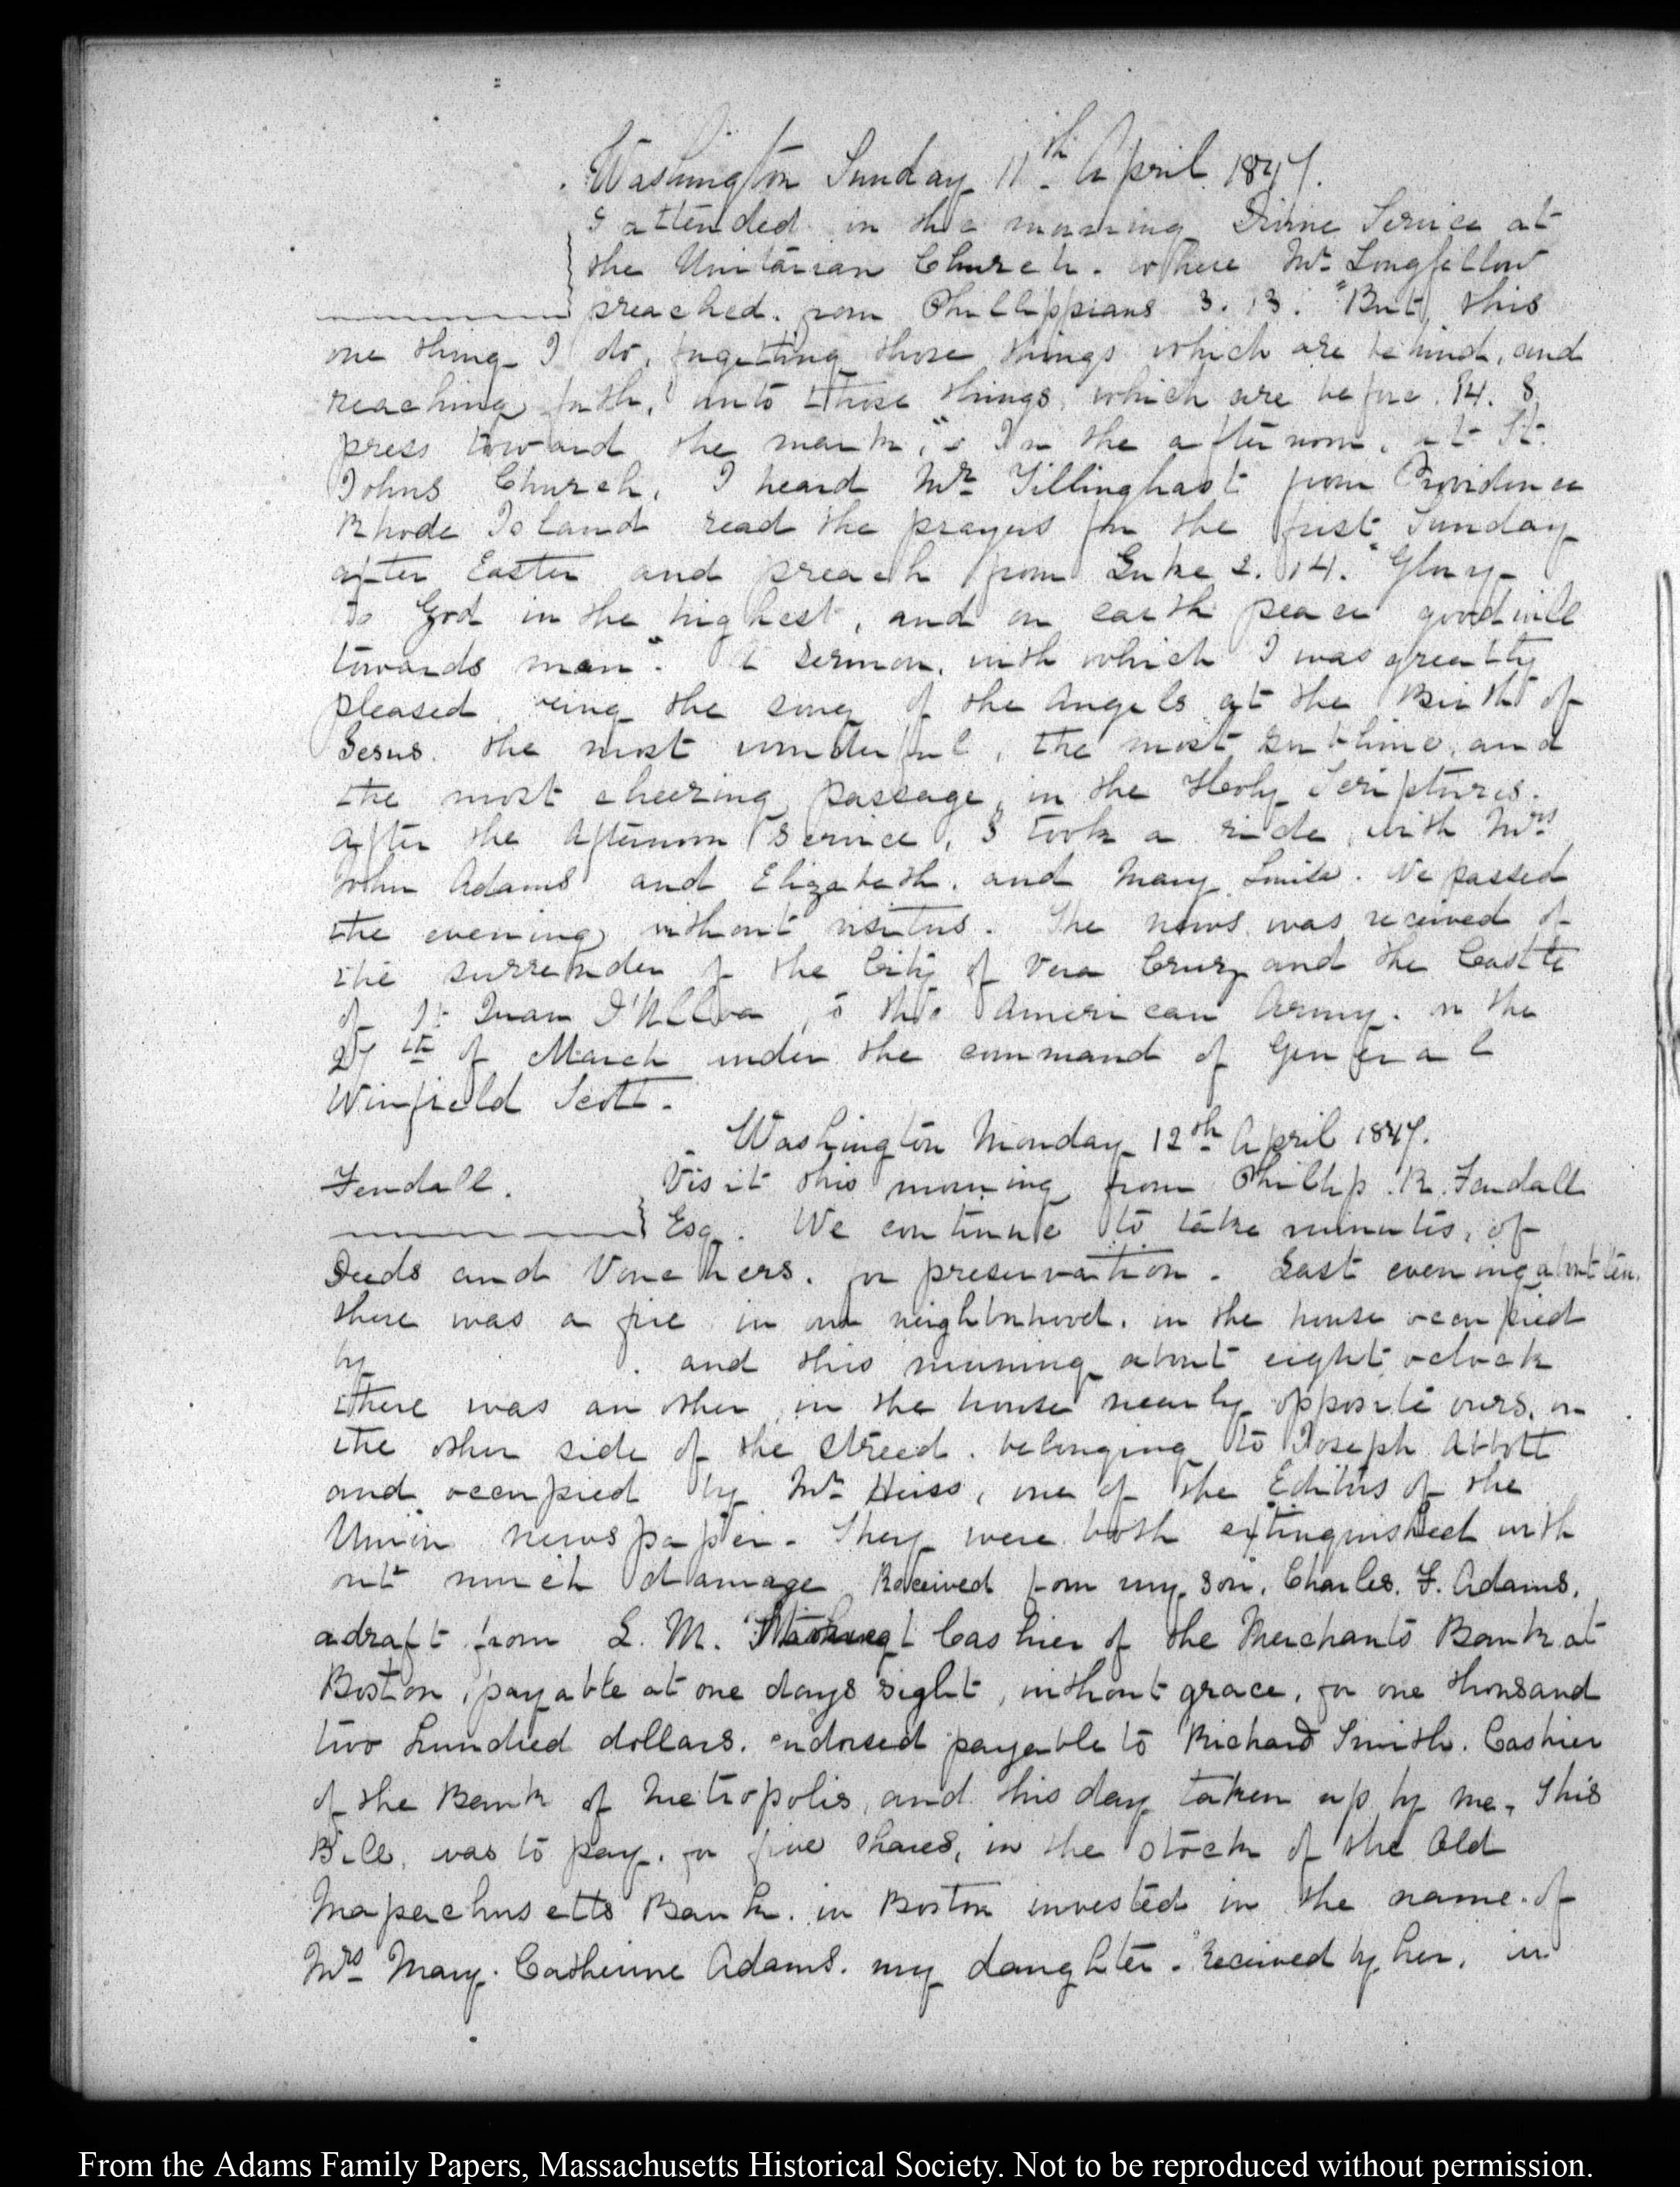 Washington Sunday 11th April 1847.
I attended in the morning Divine Service at
the Unitarian Church. where Mr Longfellow
preached. from Phillippians 3. 13. "But, this
one thing I do, forgetting those things which are behind, and
reaching forth, unto those things, which are before. 14. I
press toward the mark," In the afternoon, at St.
Johns Church, I heard Mr Tillinghast from Providence
Rhode Island read the prayers for the first Sunday
after Easter and preach from Luke 2. 14. "Glory
to God in the highest, and on earth peace good will
towards men". A Sermon, with which I was greatly
pleased, being the song of the Angels at the Birth of
Jesus. the most wonderful, the most sublime, and
the most cheering passage, in the Holy Scriptures.
After the Afternoon Service, I took a ride, with Mrs
John Adams and Elizabeth, and Mary Louisa. We passed
the evening without visitors. The news was received of
the surrender of the City of Vera Cruz and the Castle
of St Juan D'Ulloa, to the American Army. on the
27th of March under the command of General
Winfield Scott.
Washington Monday 12th April 1847.
Fendall. Visit this morning from Phillip. R. Fendall
Esq. We continue to take minutes, of
Deeds and Vouchers. for preservation. Last evening about ten.
there was a fire in our neighborhood. in the house occupied
by . and this morning about eight oclock
there was an other, in the house nearly opposite ours, on
the other side of the Streed. belonging to Joseph Abbott
and occupied by Mr Heiss, one of the Editors of the
Union newspaper. They were both extinguished with
out much damage. Received from my son, Charles. F. Adams,
a draft from L. M. Cashier of the Merchants Bank at
Boston, payable at one days sight, without grace, for one thousand
two hundred dollars. endorsed payable to Richard Smith. Cashier
of the Bank of Metropolis, and this day taken up, by me, This
Bill, was to pay. for five shares, in the stock of the Old
Massachusetts Bank. in Boston invested in the name of
Mrs Mary. Catherine Adams. my daughter. received by her, in
From the Adams Family Papers, Massachusetts Historical Society. Not to be reproduced without permission.